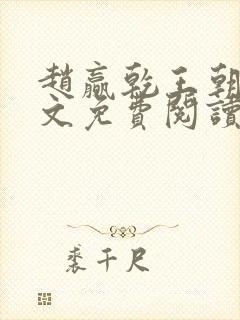 趙贏乾王朝
文免費閱讀
裘千尺